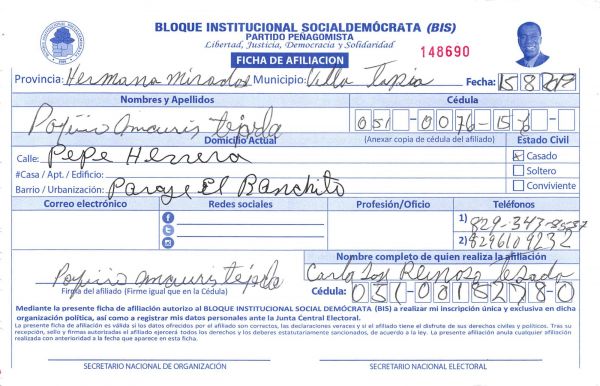 BLOQUE INSTITUCIONAL SOCIALDEMÓCRATA (BIS)
PARTIDO PEÑAGOMISTA
Libertad, Justicia, Democracia y Solidaridad
FICHA DE AFILIACION
148690
Provincia: Hermana Mirabal Municipio: Villa Tapia Fecha: 15 8
Nombres y Apellidos Cédula
tejada 051-0076-15
Domicilio Actual (Anexar copia de cédula del afiliado) Estado Civil
Calle: PePe Herrera Casado
#Casa / Apt. / Edificio: Soltero
Barrio / Urbanización: Paraje El Ranchito Conviviente
Correo electrónico Redes sociales Profesión/Oficio Teléfonos
1) 829-343-8537
2) 8296109232
Nombre completo de quien realiza la afiliación
tejada Carlos Reinoso
Firma del afiliado (Firme igual que en la Cédula) Cédula: 051-0815278-0
Mediante la presente ficha de afiliación autorizo al BLOQUE INSTITUCIONAL SOCIAL DEMÓCRATA (BIS) a realizar mi inscripción única y exclusiva en dicha
organización política, así como a registrar mis datos personales ante la Junta Central Electoral.
La presente ficha de afiliación es válida si los datos ofrecidos por el afiliado son correctos, las declaraciones veraces y si el afiliado tiene el disfrute de sus derechos civiles y políticos. Tras su
recepción, sello y firmas autorizadas el afiliado ejercerá todos los derechos y los deberes estatutariamente sancionados, de acuerdo a la ley. La presente afiliación anula cualquier afiliación
realizada con anterioridad a la fecha que aparece en esta ficha.
SECRETARIO NACIONAL DE ORGANIZACIÓN SECRETARIO NACIONAL ELECTORAL